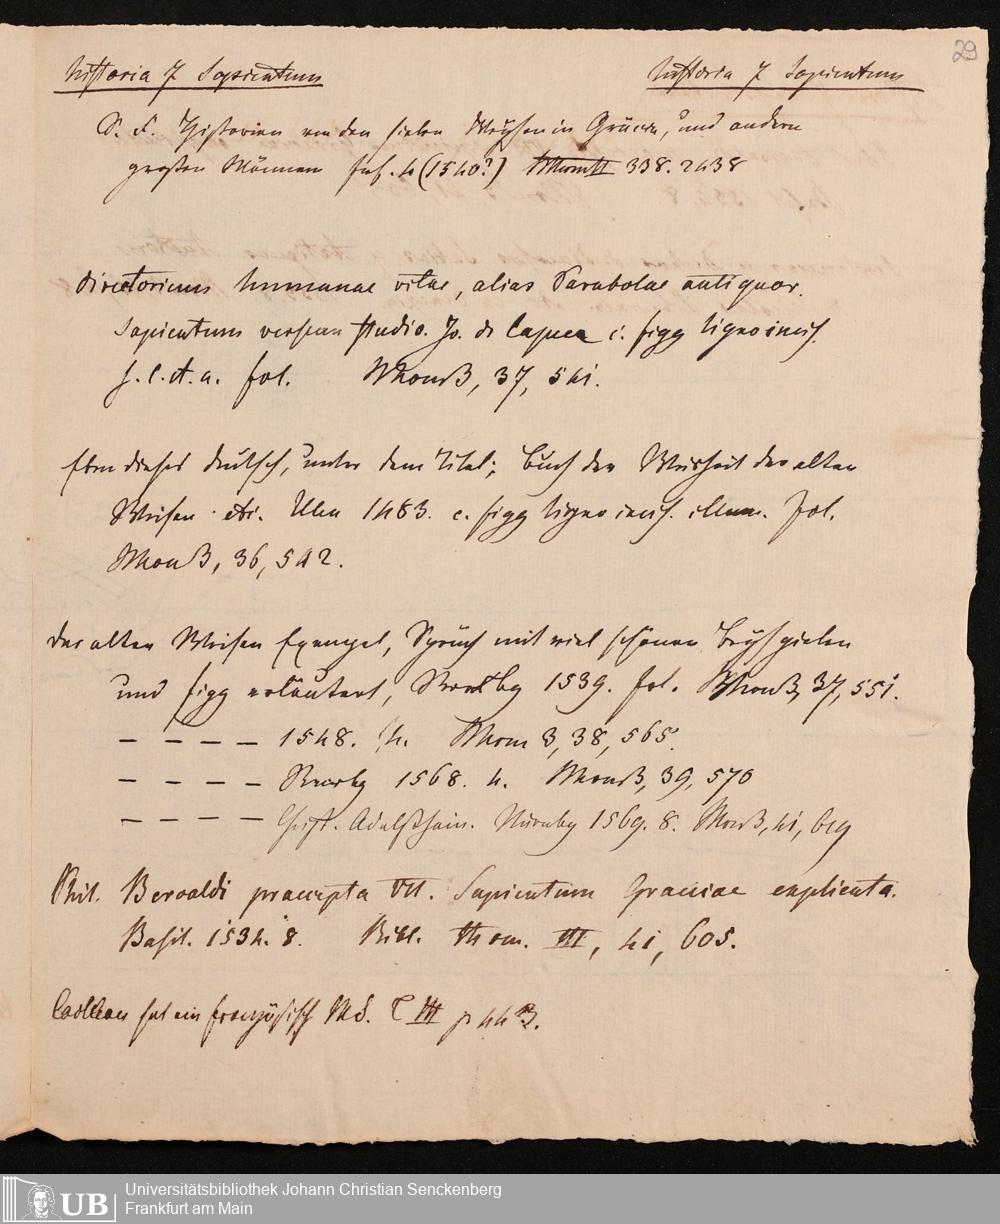 29
Historia 7 Sapientum Historia 7 Sapientum
S. F. Historien von den sieben Weysen in Gräcia, und andern
großen Männern 4 (1540?) 338. 2438
Directorium humanae vitae, alias Parabolae antiquor.
Sapientum versum studio. Jo. de Capua c. figg ligno incis.
s. l. et. a. fol. Thom B, 37, 541.
Eben dieses deutsch, unter dem Titel; Buch der Weisheit der alten
Weisen etc. Ulm 1483. c. figg ligno incis. illum. fol.
Thom B, 36, 542.
Der alten Weisen Exempel, Sprüch mit viel schönen Beyspielen
und figg erläutert, Strasbg 1539. fol. Thom B, 37, 551.
– – – – 1548. 4. Thom B, 38, 565.
– – – – 1568. 4. Thom B, 39, 570
– – – – Nürnbg 1569. 8. Thom B, 41, 619
Phil. Beroaldi praecepta VII. Sapientum Graeciae explicata.
Basil. 1534. 8. Bibl. Thom. III, 41, 605.
hat ein französisch MS. T III p 443.
Universitätsbibliothek Johann Christian Senckenberg
Frankfurt am Main
UB